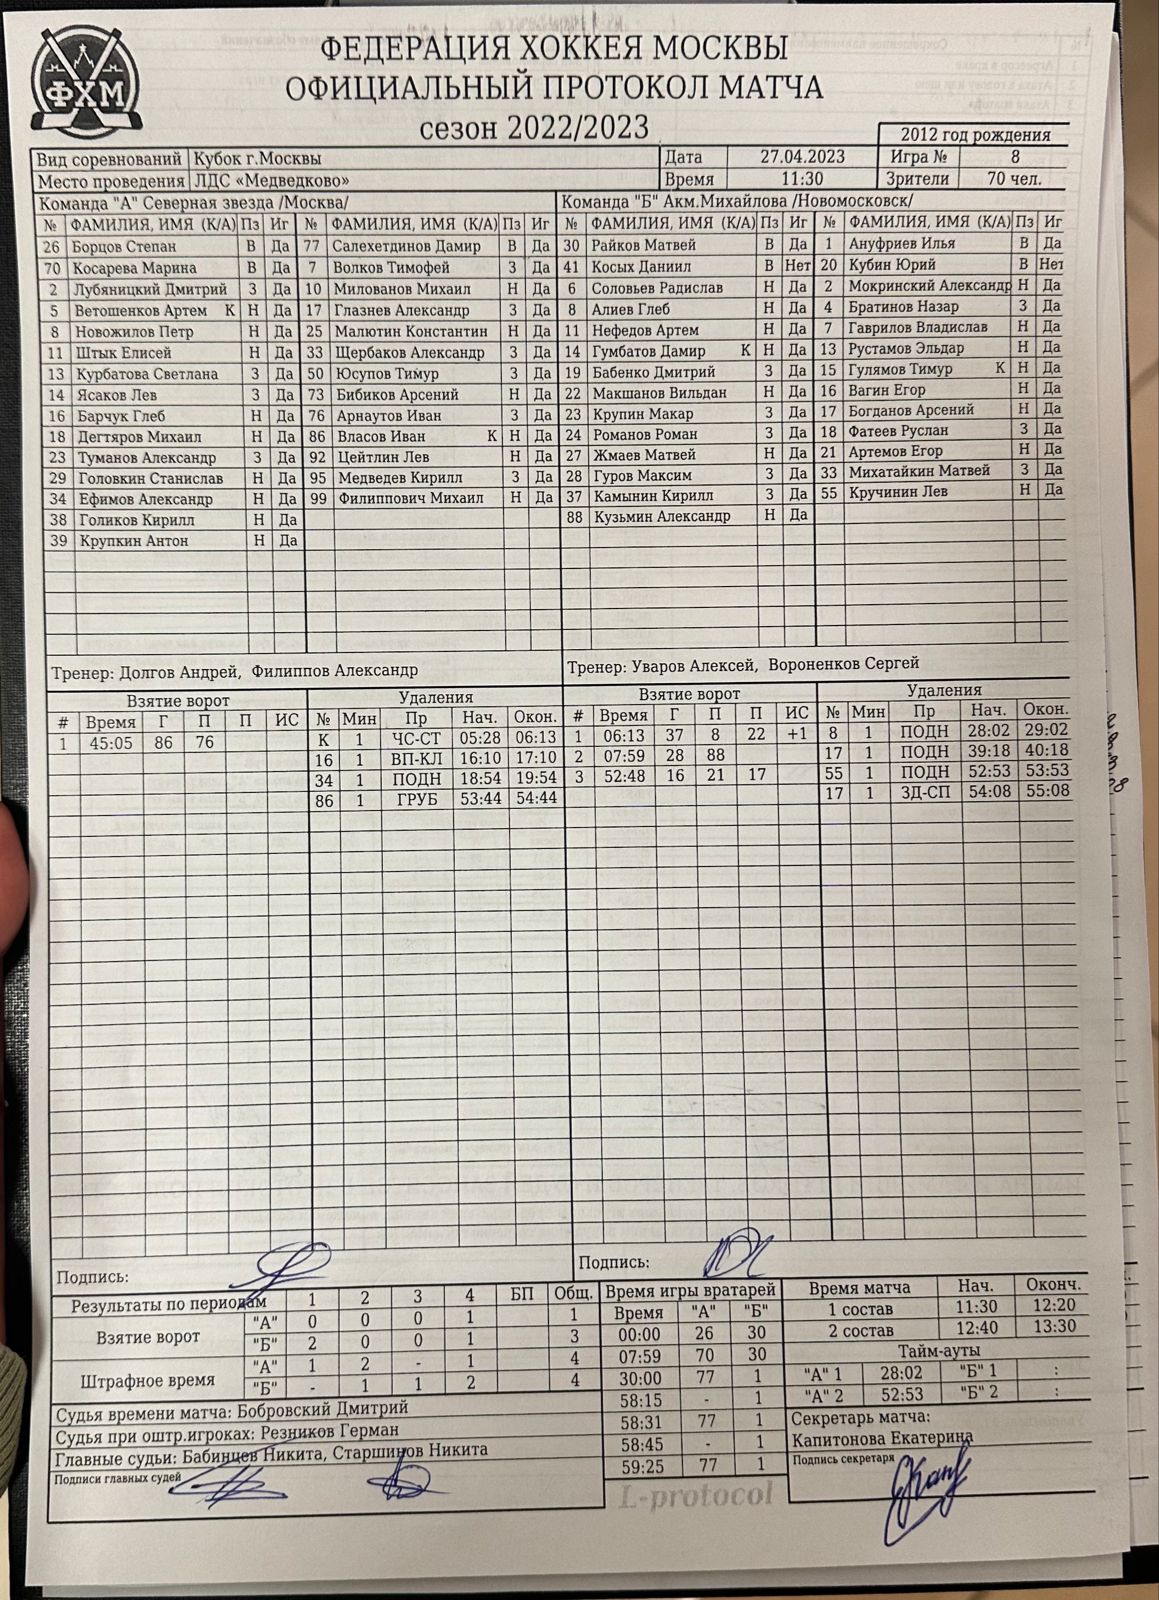 ФХМ
ФЕДЕРАЦИЯ ХОККЕЯ МОСКВЫ
ОФИЦИАЛЬНЫЙ ПРОТОКОЛ МАТЧА
сезон 2022/2023
2012 год рождения
Вид соревнований Кубок г.Москвы Дата 27.04.2023 Игра № 8
Место проведения ЛДС «Медведково» Время 11:30 Зрители 70 чел.
Команда "А" Северная звезда /Москва/ Команда "Б" Акм.Михайлова /Новомосковск/
№ ФАМИЛИЯ, ИМЯ (К/А) Пз Иг № ФАМИЛИЯ, ИМЯ (К/А) Пз Иг № ФАМИЛИЯ, ИМЯ (К/А) Пз Иг № ФАМИЛИЯ, ИМЯ (К/А) Пз Иг
26 Борцов Степан В Да 77 Салехетдинов Дамир В Да 30 Райков Матвей В Да 1 Ануфриев Илья В Да
70 Косарева Марина В Да 7 Волков Тимофей З Да 41 Косых Даниил В Нет 20 Кубин Юрий В Нет
2 Лубяницкий Дмитрий З Да 10 Милованов Михаил Н Да 6 Соловьев Радислав Н Да 2 Мокринский Александр Н Да
5 Ветошенков Артем К Н Да 17 Глазнев Александр З Да 8 Алиев Глеб Н Да 4 Братинов Назар З Да
8 Новожилов Петр Н Да 25 Малютин Константин Н Да 11 Нефедов Артем Н Да 7 Гаврилов Владислав Н Да
11 Штык Елисей Н Да 33 Щербаков Александр З Да 14 Гумбатов Дамир К Н Да 13 Рустамов Эльдар Н Да
13 Курбатова Светлана З Да 50 Юсупов Тимур З Да 19 Бабенко Дмитрий З Да 15 Гулямов Тимур К Н Да
14 Ясаков Лев З Да 73 Бибиков Арсений Н Да 22 Макшанов Вильдан Н Да 16 Вагин Егор Н Да
16 Барчук Глеб Н Да 76 Арнаутов Иван З Да 23 Крупин Макар З Да 17 Богданов Арсений Н Да
18 Дегтяров Михаил Н Да 86 Власов Иван К Н Да 24 Романов Роман З Да 18 Фатеев Руслан З Да
23 Туманов Александр З Да 92 Цейтлин Лев Н Да 27 Жмаев Матвей Н Да 21 Артемов Егор Н Да
29 Головкин Станислав Н Да 95 Медведев Кирилл З Да 28 Гуров Максим З Да 33 Михатайкин Матвей З Да
34 Ефимов Александр Н Да 99 Филиппович Михаил Н Да 37 Камынин Кирилл З Да 55 Кручинин Лев Н Да
38 Голиков Кирилл Н Да 88 Кузьмин Александр Н Да
39 Крупкин Антон Н Да
Тренер: Долгов Андрей, Филиппов Александр Тренер: Уваров Алексей, Вороненков Сергей
Взятие ворот Удаления Взятие ворот Удаления
# Время Г П П ИС № Мин Пр Нач. Окон. # Время Г П П ИС № Мин Пр Нач. Окон.
1 45:05 86 76 К 1 ЧС-СТ 05:28 06:13 1 06:13 37 8 22 +1 8 1 ПОДН 28:02 29:02
16 1 ВП-КЛ 16:10 17:10 2 07:59 28 88 17 1 ПОДН 39:18 40:18
34 1 ПОДН 18:54 19:54 3 52:48 16 21 17 55 1 ПОДН 52:53 53:53
86 1 ГРУБ 53:44 54:44 17 1 ЗД-СП 54:08 55:08
Подпись: Подпись:
Результаты по периодам 1 2 3 4 БП Общ.
Взятие ворот "А" 0 0 0 1 1
"Б" 2 0 0 1 3
Штрафное время "А" 1 2 - 1 4
"Б" - 1 1 2 4
Судья времени матча: Бобровский Дмитрий
Судья при оштр.игроках: Резников Герман
Главные судьи: Бабинцев Никита, Старшинов Никита
Подписи главных судей
Время игры вратарей
Время "А" "Б"
00:00 26 30
07:59 70 30
30:00 77 1
58:15 - 1
58:31 77 1
58:45 - 1
59:25 77 1
L-protocol
Время матча Нач. Оконч.
1 состав 11:30 12:20
2 состав 12:40 13:30
Тайм-ауты
"А" 1 28:02 "Б" 1 :
"А" 2 52:53 "Б" 2 :
Секретарь матча:
Капитонова Екатерина
Подпись секретаря